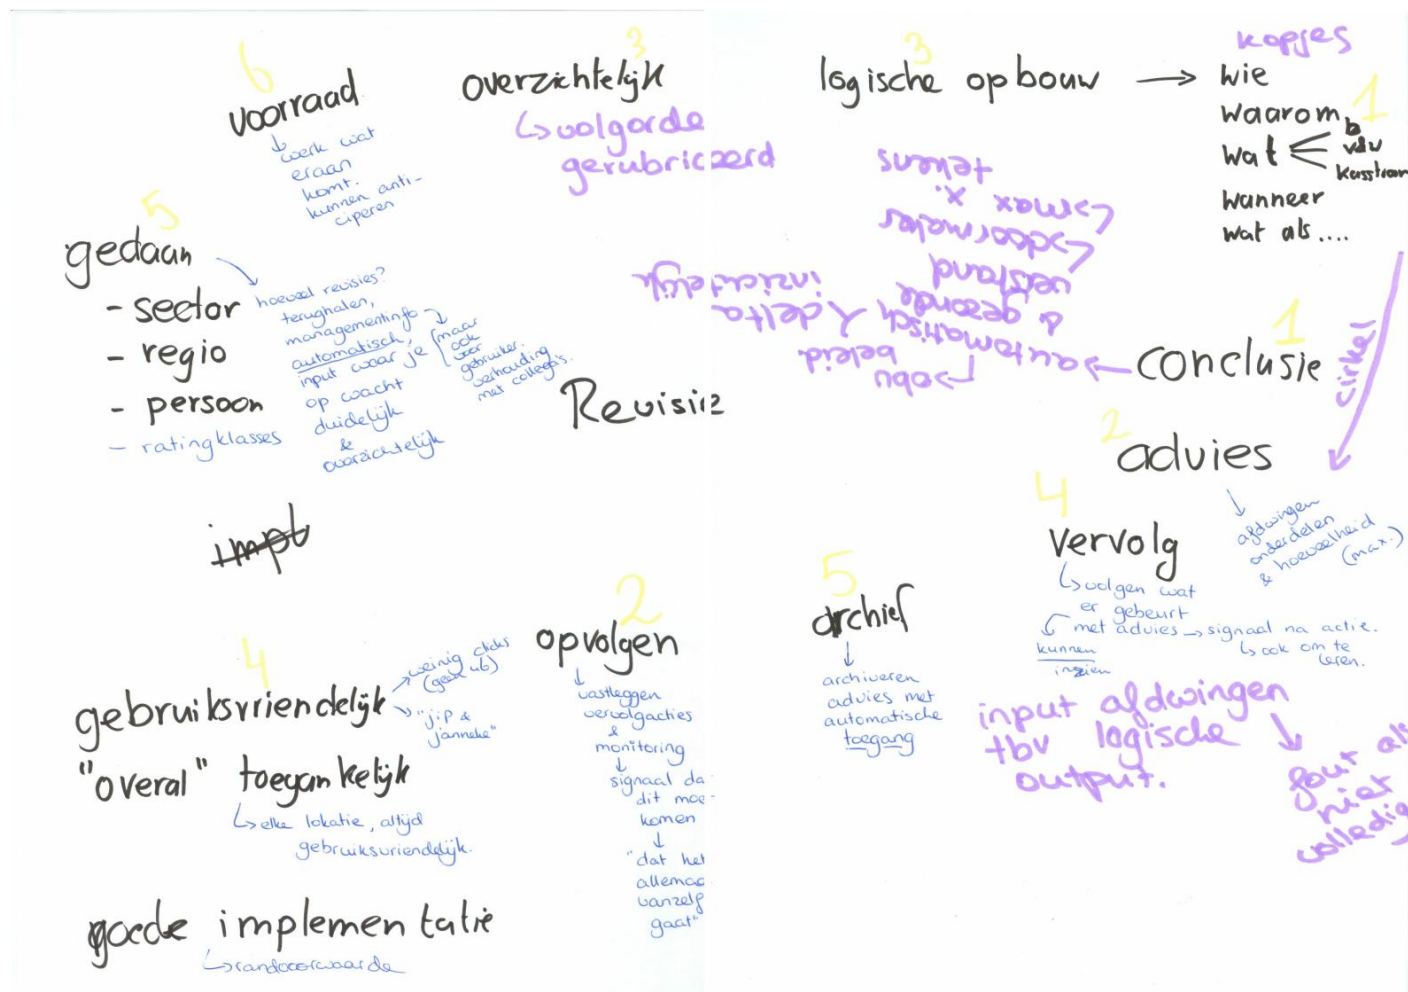 6
voorraad
werk wat
eraan
komt.
kunnen anti-
ciperen
3
overzichtelijk
volgorde
gerubriceerd
5
gedaan
- sector
- regio
- persoon
- ratingklasses
hoeveel revisies?
terughalen,
managementinfo
automatisch,
input waar je
op wacht
duidelijk
&
overzichtelijk
maar
ook
voor
gebruiker.
verhouding
met collega's.
Revisie
impl
4
gebruiksvriendelijk
weinig clicks
"jip &
janneke"
"overal" toegankelijk
elke lokatie, altijd
gebruiksvriendelijk.
goede implementatie
randvoorwaarde
2
opvolgen
vastleggen
vervolgacties
&
monitoring
signaal da
dit moe
komen
"dat het
allemaa
vanzelf
gaat"
3
logische opbouw
kopjes
1
wie
waarom
wat
b
v&v
kasstrom
wanneer
wat als....
cirkel
1
conclusie
obv
beleid
automatisch
& gezonde
verstand
doormaken
max x.
tekens
delta
inzichtelijk
2
advies
afdwingen
onderdelen
& hoeveelheid
(max.)
4
vervolg
volgen wat
er gebeurt
met advies → signaal na actie.
kunnen
inzien
ook om te
leren.
5
archief
archiveren
advies met
automatische
toegang
input afdwingen
tbv logische
output.
fout als
niet
volledig